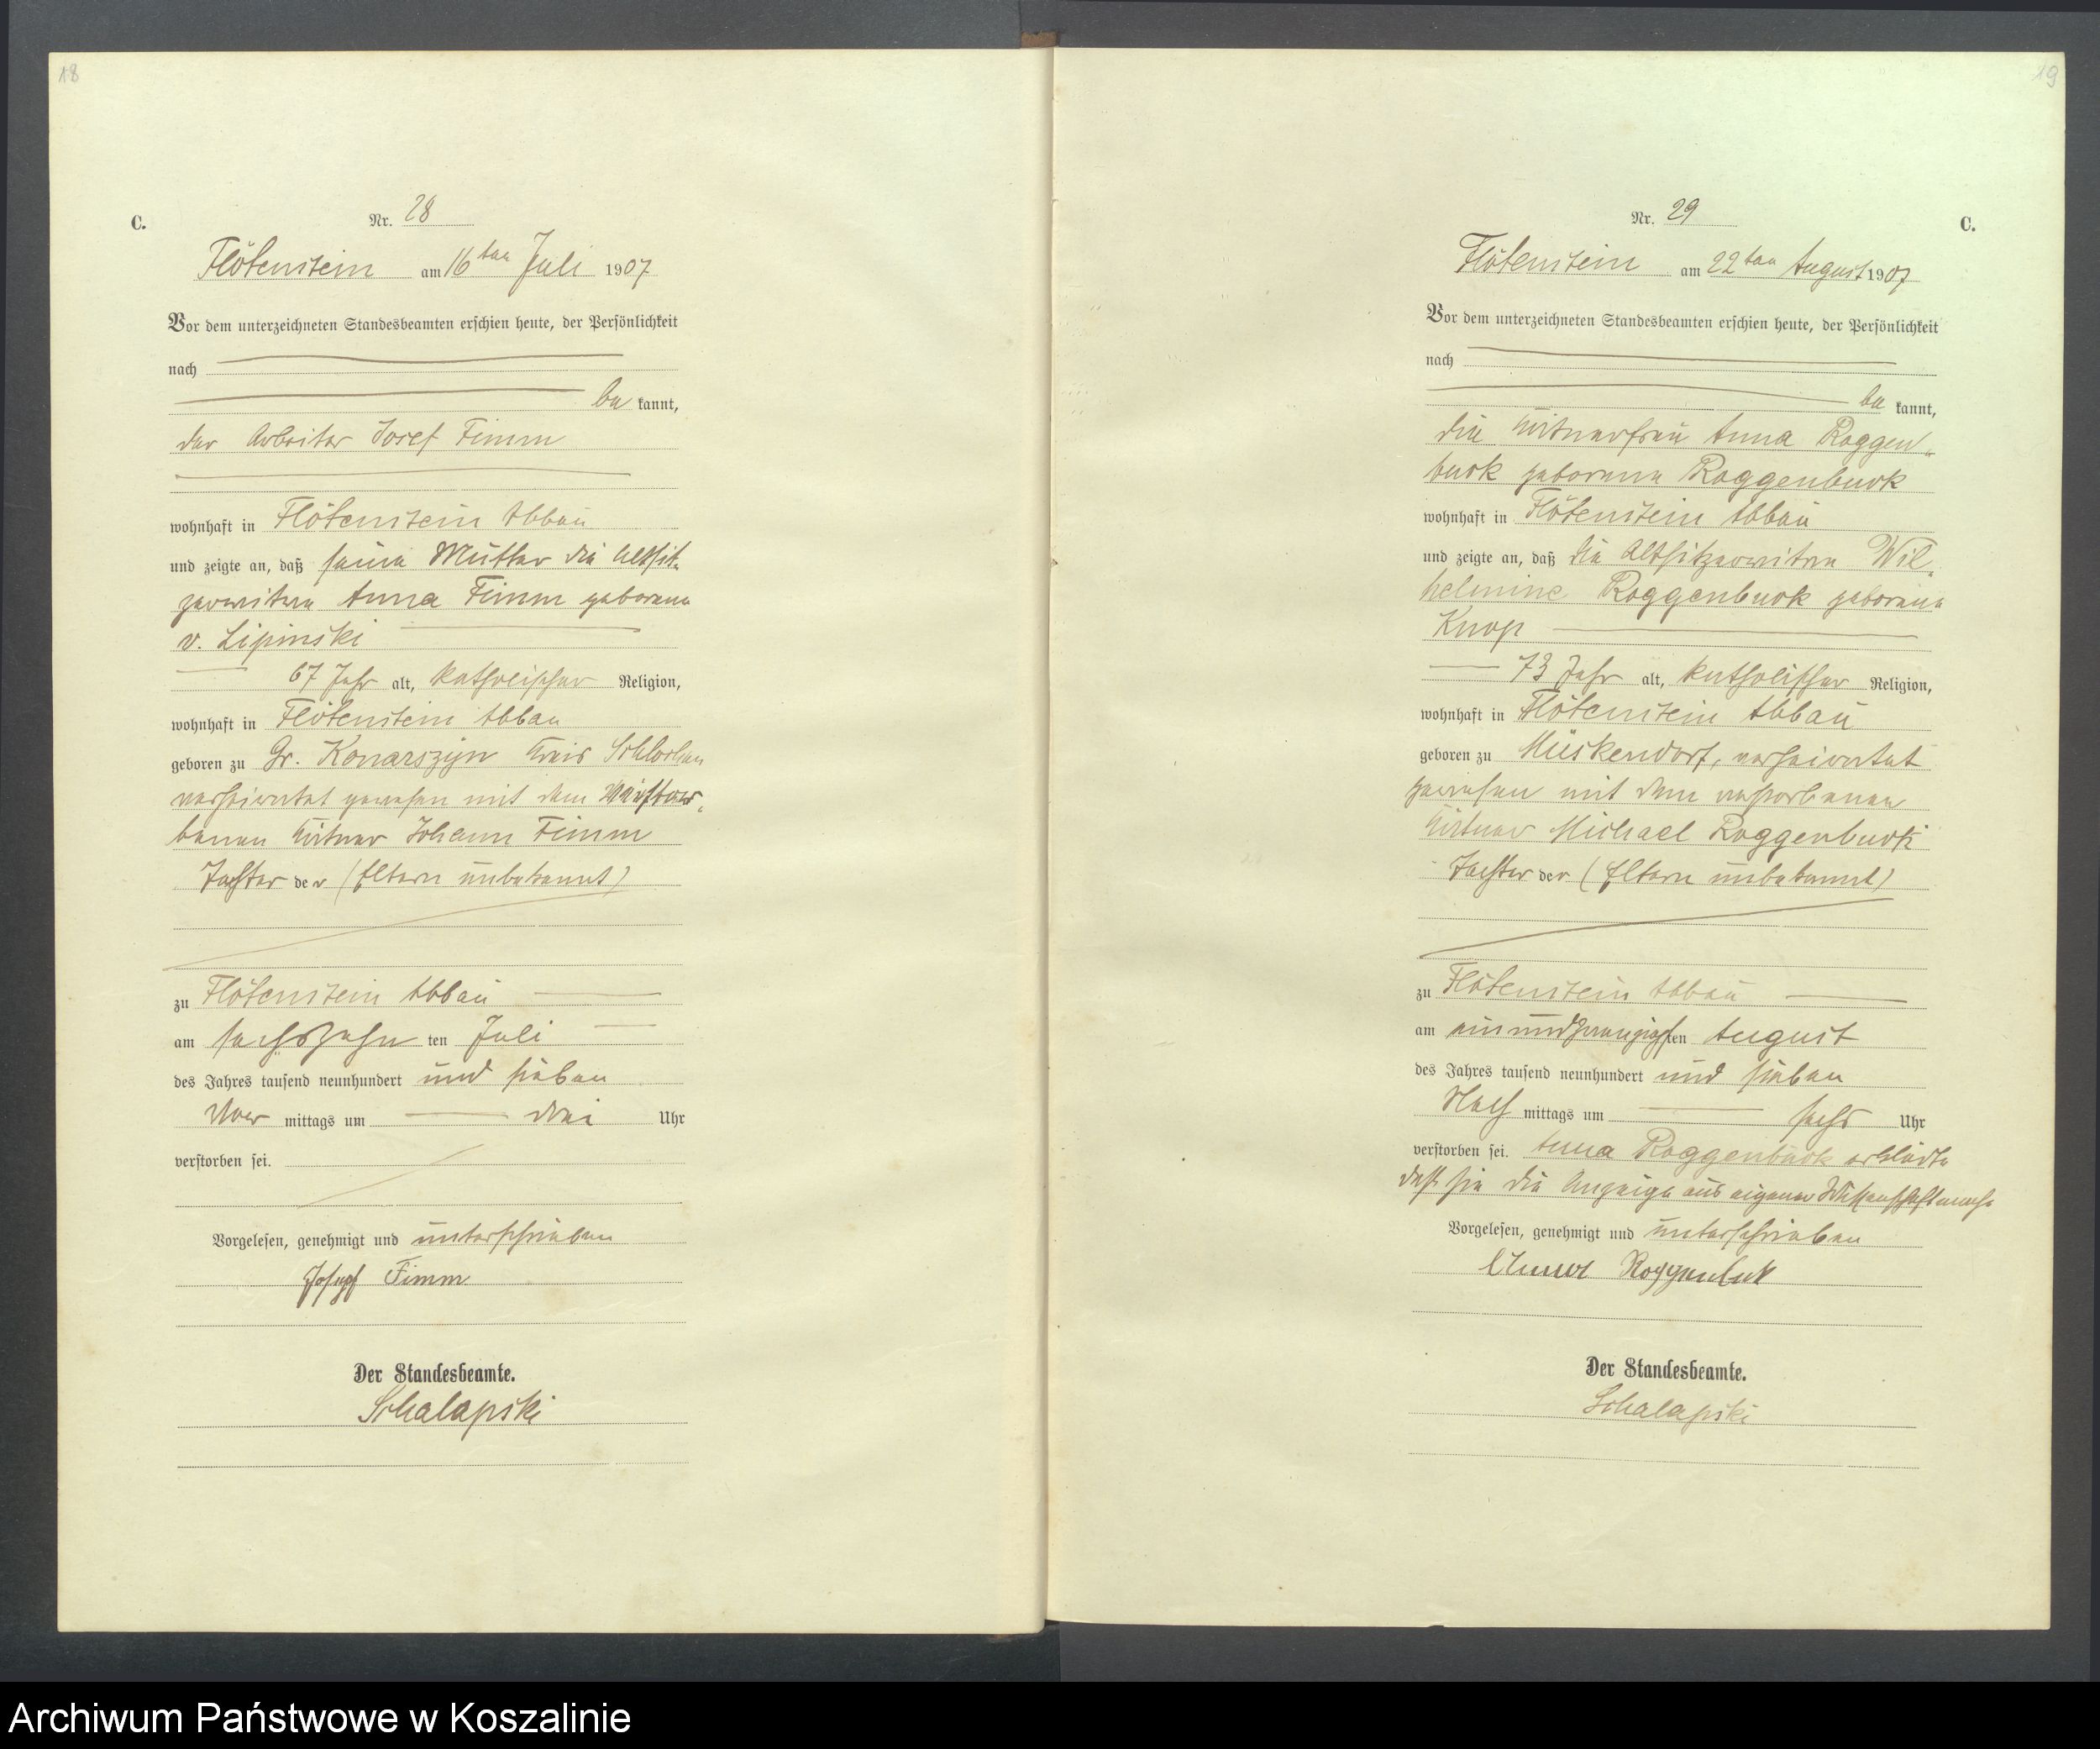 18
C.
Nr. 28
Flötenstein am 16ten Juli 1907
Vor dem unterzeichneten Standesbeamten erschien heute, der Persönlichkeit
nach
be kannt,
der Arbeiter Josef Fimm
wohnhaft in Flötenstein Abbau
und zeigte an, daß seine Mutter die Altsit-
zerwitwe Anna Fimm geborene
v. Lipinski
67 Jahr alt, katholischer Religion,
wohnhaft in Flötenstein Abbau
geboren zu Gr. Konarszyn Kreis Schlochau
verheiratet gewesen mit dem verstor-
benen Kätner Johann Fimm
Tochter der (Eltern unbekannt)
zu Flötenstein Abbau
am sechszehn ten Juli
des Jahres tausend neunhundert und sieben
Vor mittags um drei Uhr
verstorben sei.
Vorgelesen, genehmigt und unterschrieben
Joseph Fimm
Der Standesbeamte.
Schalapski
19
Nr. 29
C.
Flötenstein am 22ten August 1907
Vor dem unterzeichneten Standesbeamten erschien heute, der Persönlichkeit
nach
be kannt,
die Kätnerfrau Anna Roggen-
buck geborene Roggenbuck
wohnhaft in Flötenstein Abbau
und zeigte an, daß die Altsitzerwitwe Wil-
helmine Roggenbuck geborene
Knop
73 Jahr alt, katholischer Religion,
wohnhaft in Flötenstein Abbau
geboren zu Müskendorf, verheiratet
gewesen mit dem verstorbenen
Kätner Michael Roggenbuck
Tochter der (Eltern unbekannt)
zu Flötenstein Abbau
am einundzwanzigsten August
des Jahres tausend neunhundert und sieben
Nach mittags um sechs Uhr
verstorben sei. Anna Roggenbuck erklärte
daß sie die Anzeige aus eigener Wissenschaft mache
Vorgelesen, genehmigt und unterschrieben
Anna Roggenbuk
Der Standesbeamte.
Schalapski
Archiwum Państwowe w Koszalinie